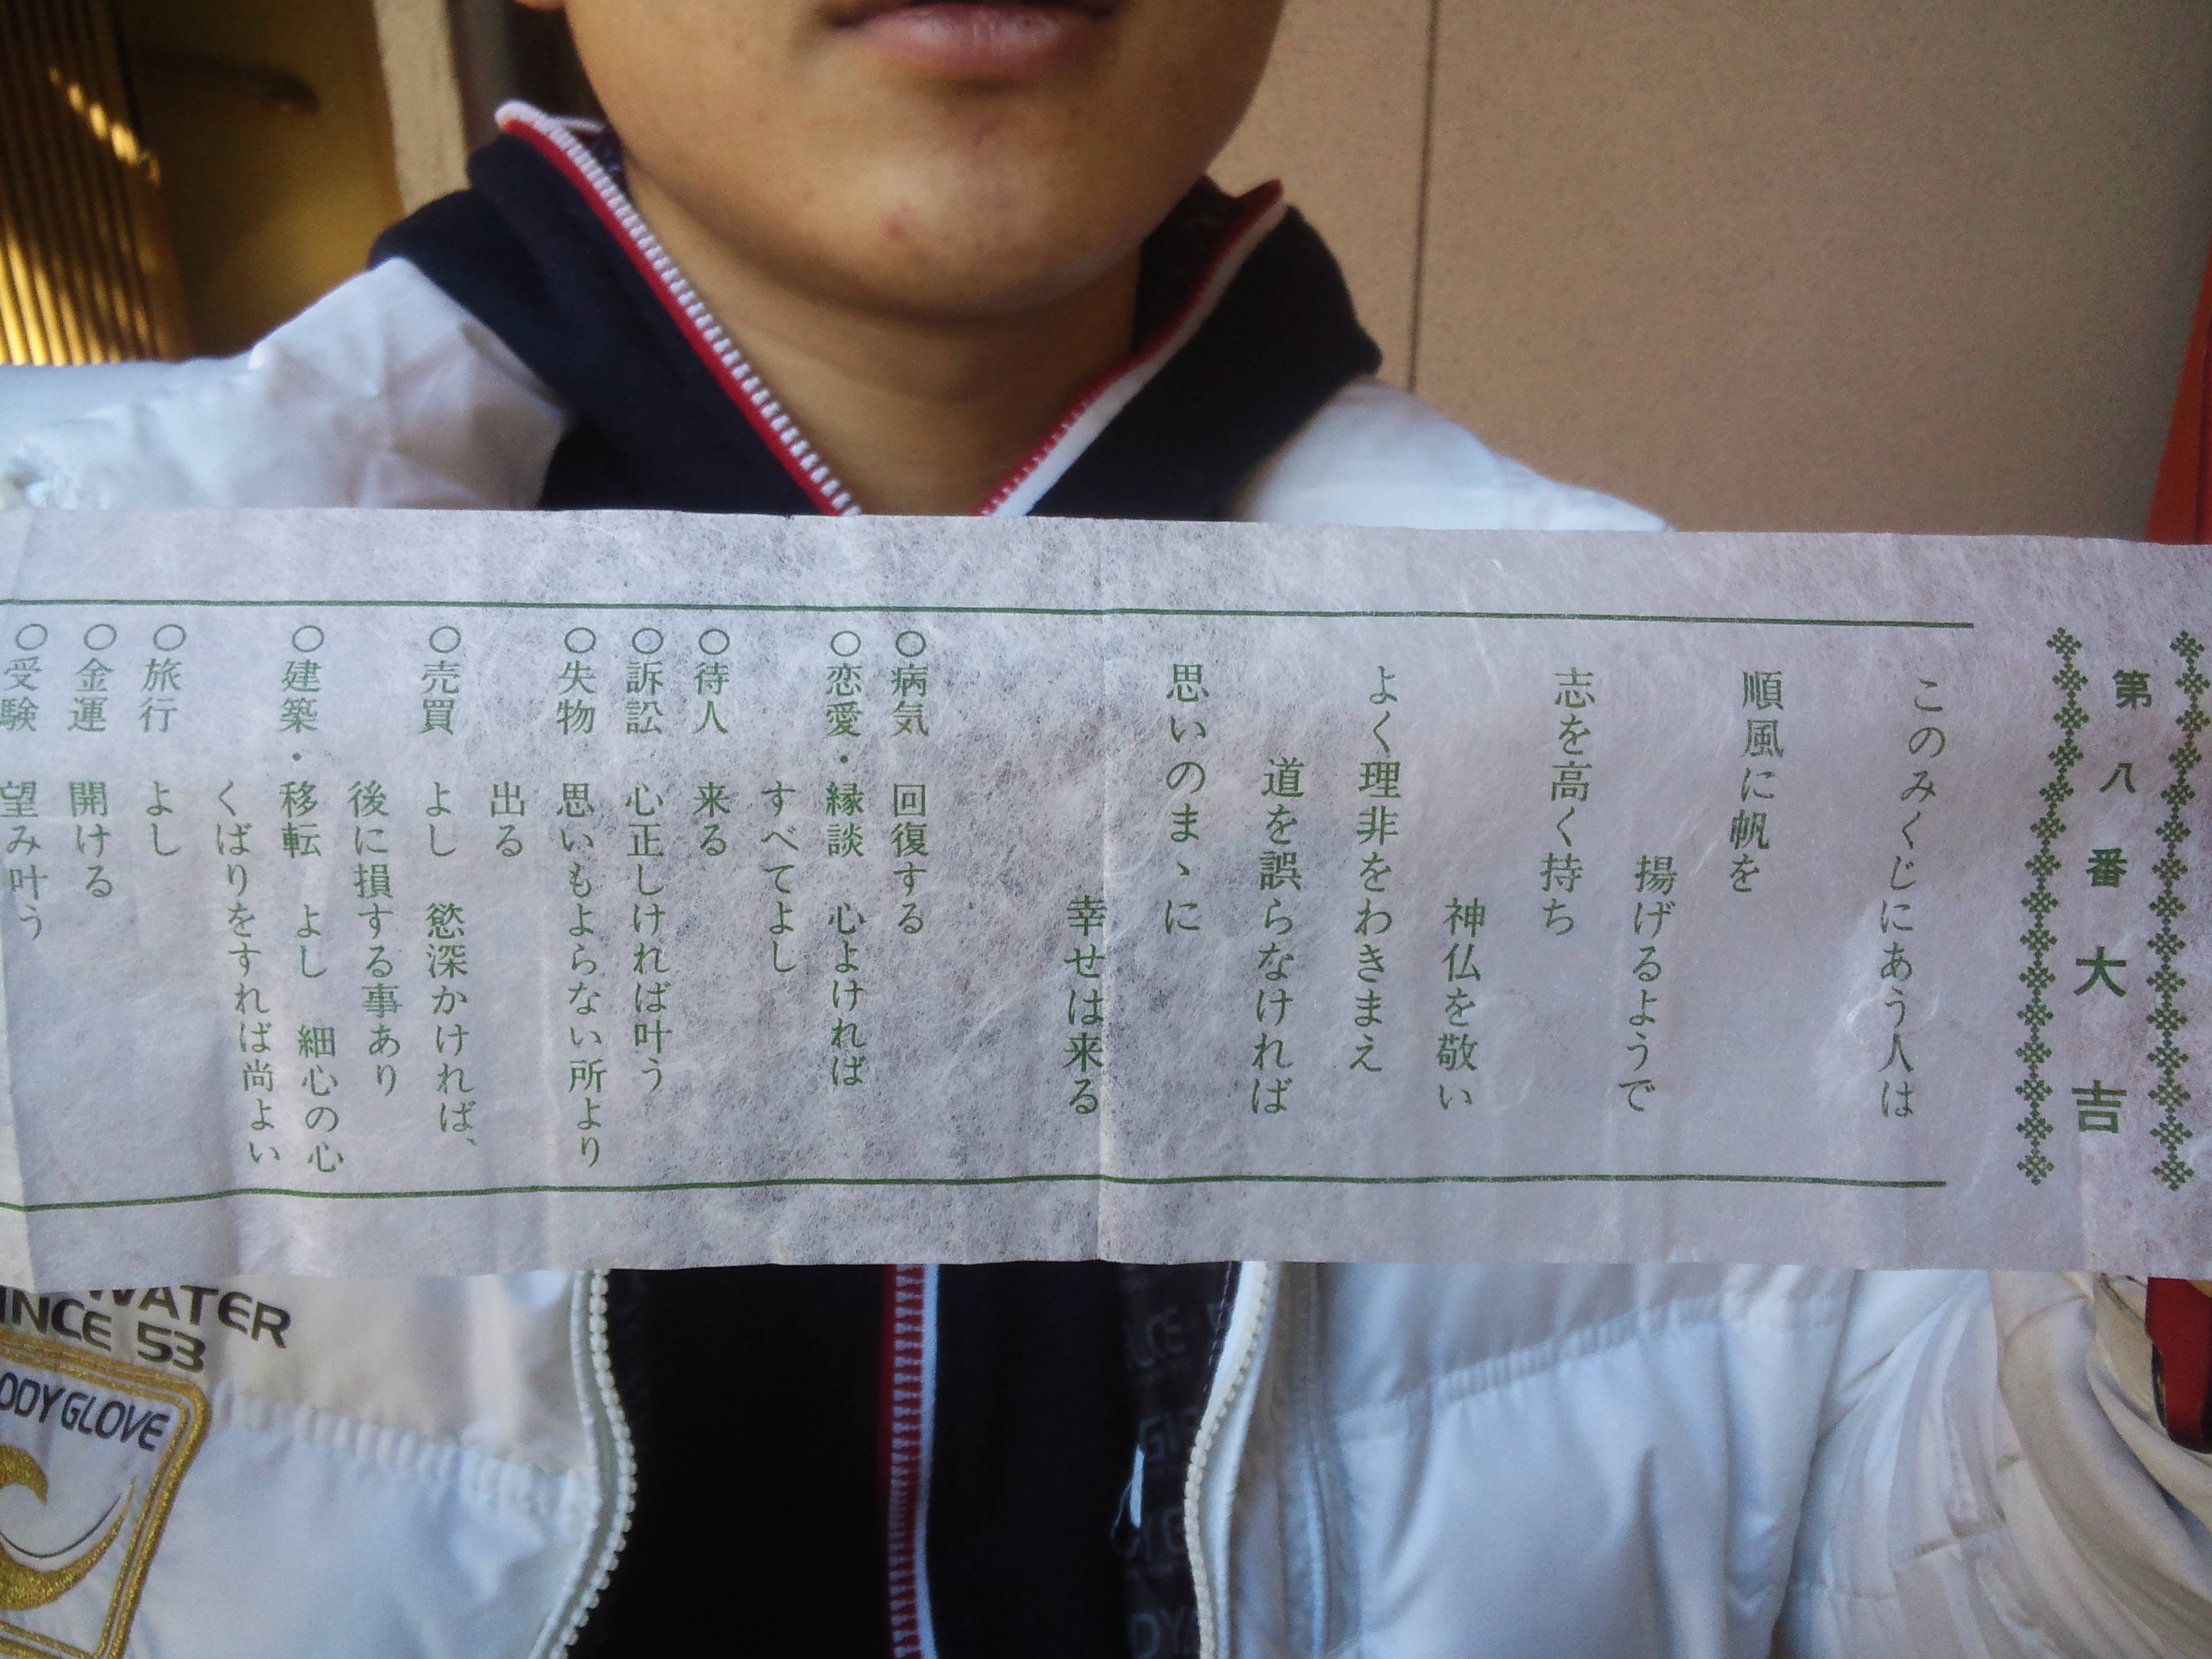 第八番大吉
このみくじにあう人は
順風に帆を
揚げるようで
志を高く持ち
神仏を敬い
よく理非をわきまえ
道を誤らなければ
思いのまゝに
幸せは来る
○病気 回復する
○恋愛・縁談 心よければ
すべてよし
○待人 来る
○訴訟 心正しければ叶う
○失物 思いもよらない所より
出る
○売買 よし 慾深かければ、
後に損する事あり
○建築・移転 よし 細心の心
くばりをすれば尚よい
○旅行 よし
○金運 開ける
○受験 望み叶う
WATER
INCE 53
ODY GLOVE